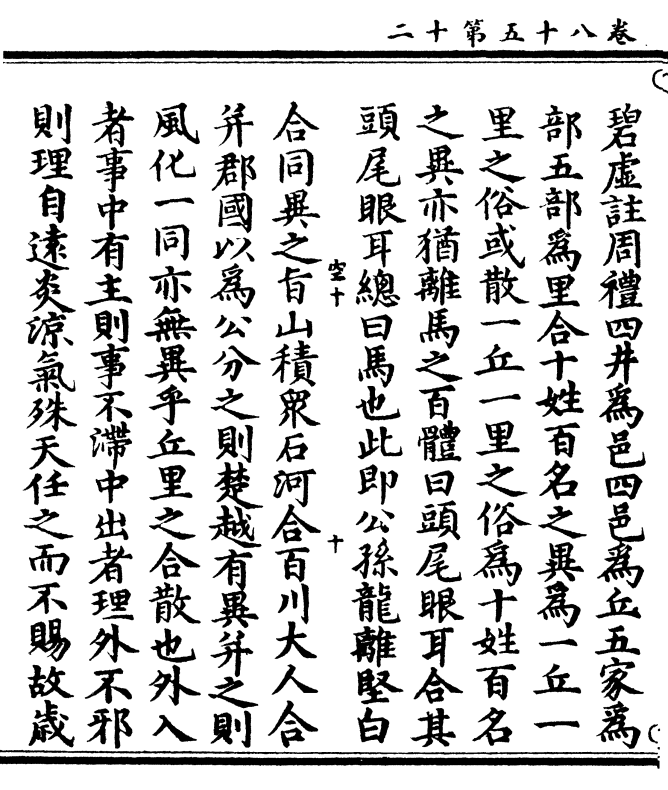 卷八十五第十二
碧虛註周禮四井爲邑四邑爲丘五家爲
部五部爲里合十姓百名之異爲一丘一
里之俗或散一丘一里之俗爲十姓百名
之異亦猶離馬之百體曰頭尾眼耳合其
頭尾眼耳總曰馬也此即公孫龍離堅白
空十
十
合同異之旨山積衆石河合百川大人合
并郡國以爲公分之則楚越有異并之則
風化一同亦無異乎丘里之合散也外入
者事中有主則事不滯中出者理外不邪
則理自遠炎涼氣殊天任之而不賜故歲